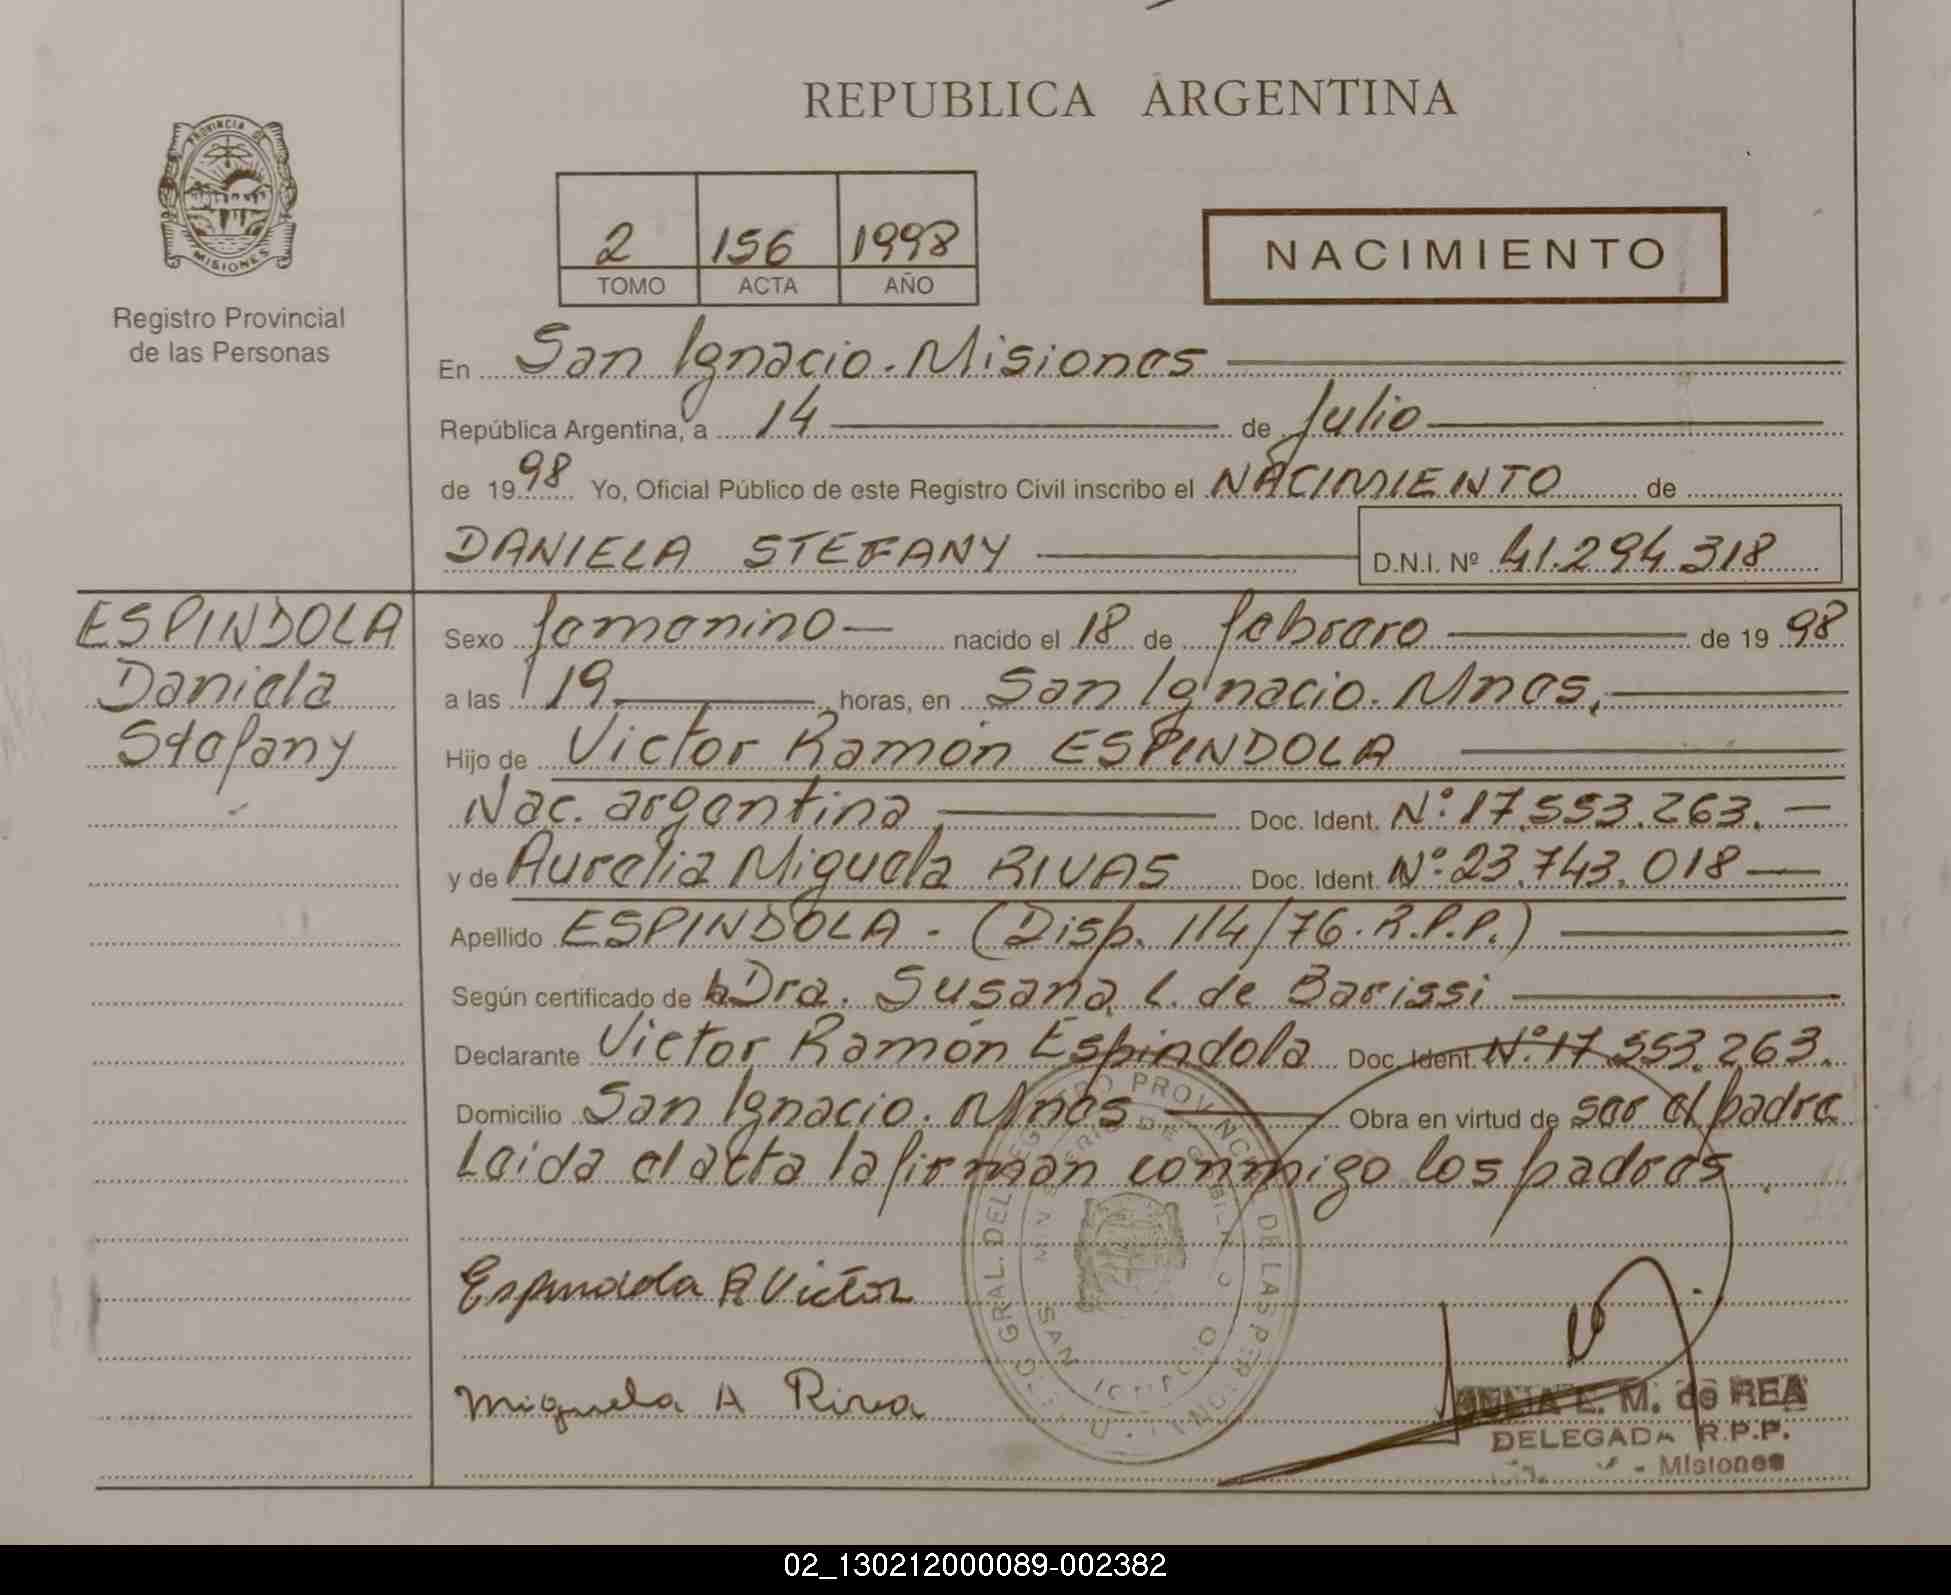 REPUBLICA ARGENTINA
PROVINCIA DE
MISIONES
Registro Provincial
de las Personas
2 156 1998
TOMO ACTA AÑO
NACIMIENTO
En San Ignacio. Misiones
República Argentina, a 14 de Julio
de 1998 Yo, Oficial Público de este Registro Civil inscribo el NACIMIENTO de
DANIELA STEFANY D.N.I. Nº 41.294.318
ESPINDOLA
Daniela
Stefany
Sexo femenino nacido el 18 de febrero de 1998
a las 19 horas, en San Ignacio. Mnes.
Hijo de Victor Ramón ESPINDOLA
Nac. argentina Doc. Ident. Nº 17.553.263.
y de Aurelia Miguela RIVAS Doc. Ident. Nº 23.743.018
Apellido ESPINDOLA - (Disp. 114/76. R.P.P.)
Según certificado de Dra. Susana L. de Barissi
Declarante Victor Ramón Espindola Doc. Ident. Nº 17.553.263.
Domicilio San Ignacio. Mnes Obra en virtud de ser el padre
Leida el acta la firman conmigo los padres
Espindola R Victor
Miguela A Riva
E. M. de REA
DELEGADA R.P.P.
Misiones
02_130212000089-002382